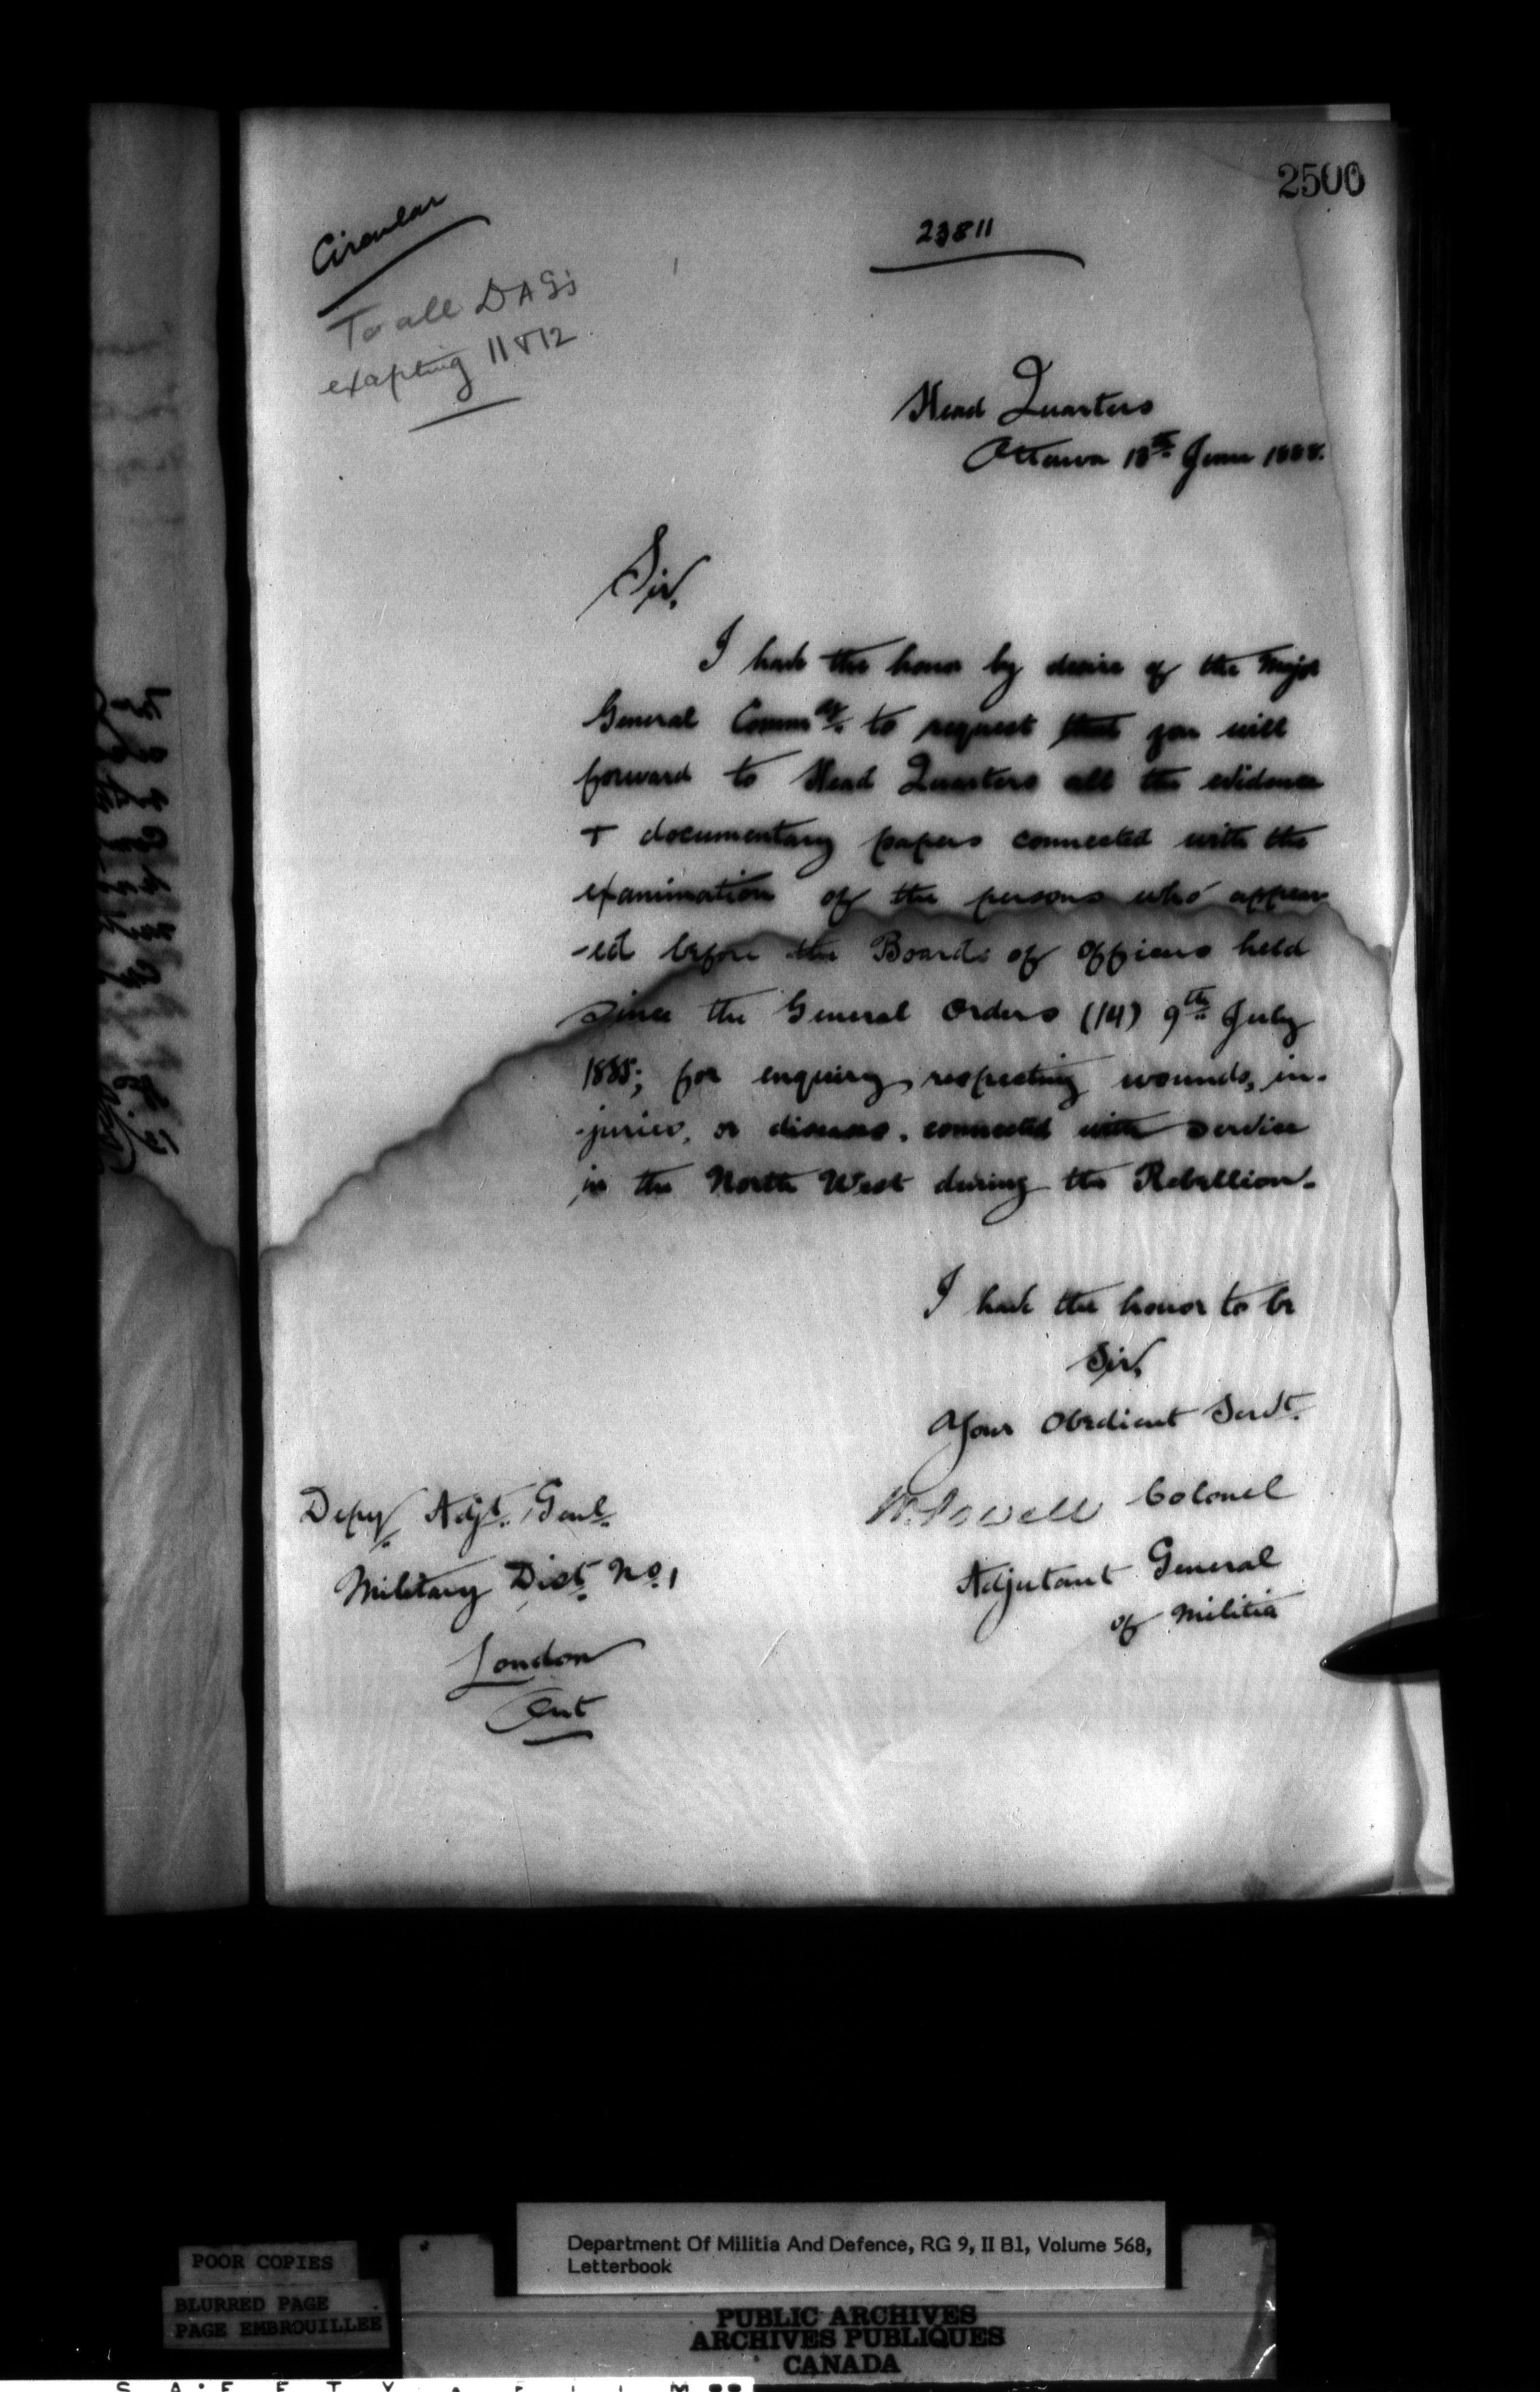 2500
23811
Circular
To all DAG's
exepting 11 & 12
Head Quarters
Ottawa 18th June 1888.
Sir,
I have the honor by desire of the Major
General Commdg. to request that you will
forward to Head Quarters all the evidence
+ documentary papers connected with the
examination of the persons who appear
-ed before the Boards of Officers held
since the General Orders (14) 9th July
1885; for enquiry, respecting wounds, in-
-juries, or diseases, connected with service
in the North West during the Rebellion.
I have the honor to be
Sir,
Your Obedient Servt.
W. Powell Colonel
Adjutant General
of Militia
Depy Adjt. Genl.
Military Dist. No. 1
London
Ont
Department Of Militia And Defence, RG 9, II B1, Volume 568,
Letterbook
POOR COPIES
BLURRED PAGE
PAGE EMBROUILLEE
PUBLIC ARCHIVES
ARCHIVES PUBLIQUES
CANADA